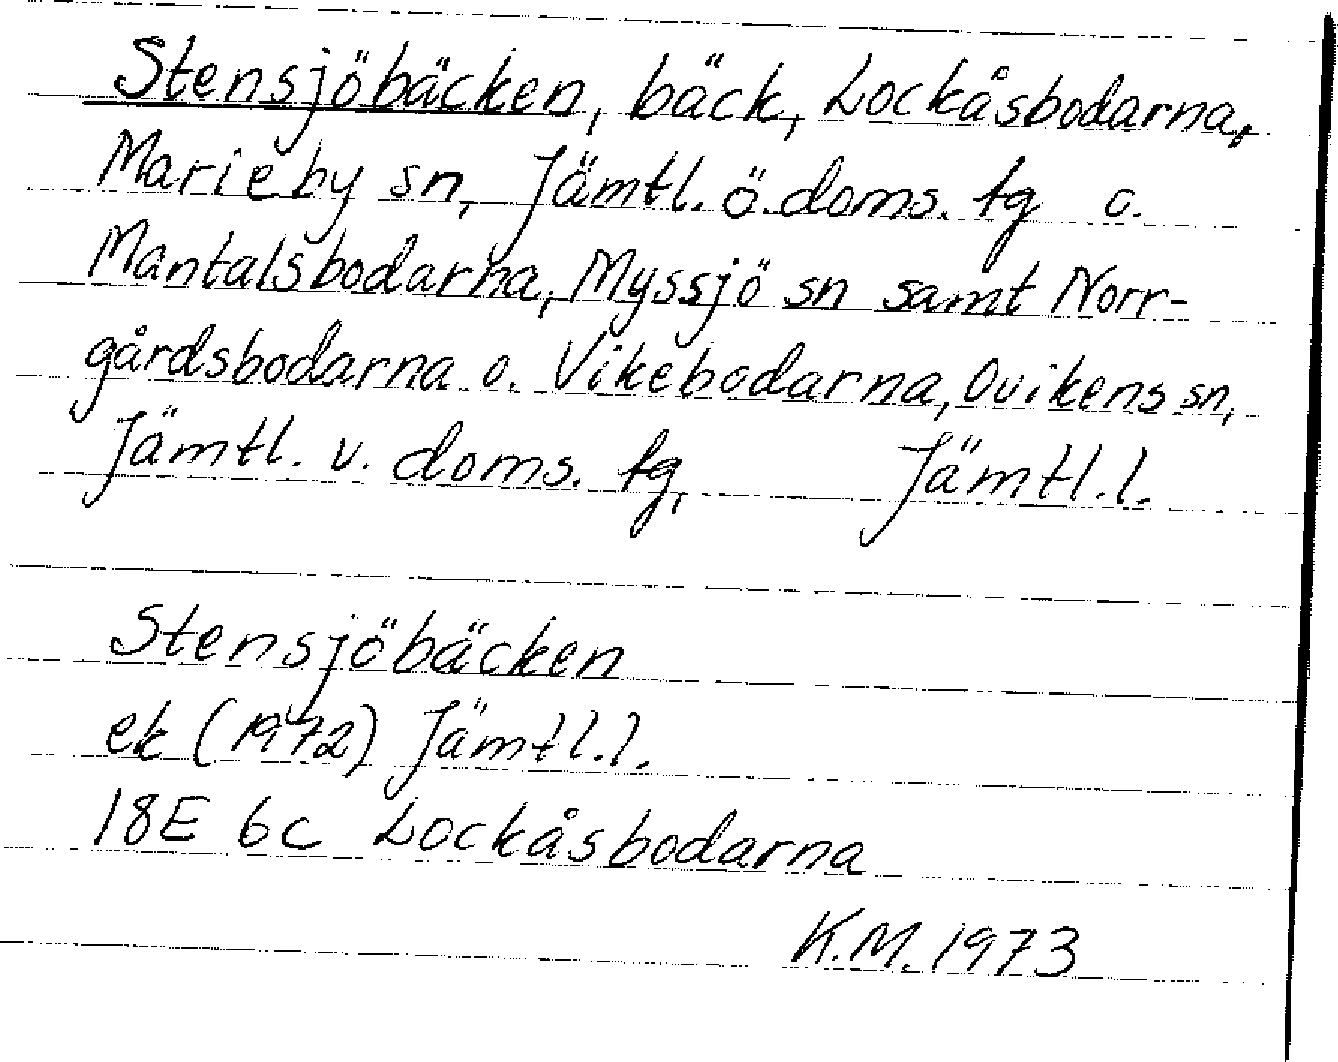 Stensjöbäcken, bäck, Lockåsbodarna,
Marieby sn, Jämtl. ö. doms. tg o.
Mantalsbodarna, Myssjö sn samt Norr-
gårdsbodarna o. Vikebodarna, Ovikens sn,
Jämtl. v. doms. tg, Jämtl. l.
Stensjöbäcken
ek (1972) Jämtl. l.
18E 6c Lockåsbodarna
K.M. 1973